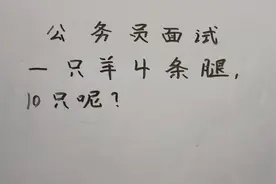 公务员面试
一只羊4条腿,
10只呢?